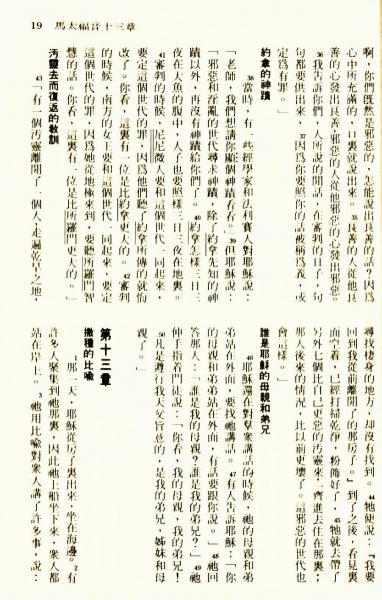 19 馬太福音十三章
啊，你們既然是邪惡的，怎能說出良善的話？因爲
心中所充滿的，口裏就說出來。35良善的人從他良
善的心發出良善，邪惡的人從他邪惡的心發出邪惡。
36我告訴你們，人所說的閒話，在審判的日子，句
句都要供出來，37因爲你要照你的話被稱爲義，或
定爲有罪。」
約拿的神蹟
38當時，有一些經學家和法利賽人對耶穌說：
「老師，我們想請你顯個神蹟看看。」39但耶穌說：
「邪惡和淫亂的世代尋求神蹟，除了約拿先知的神
蹟以外，再沒有神蹟給你們了。40約拿怎樣三日三
夜在大魚的腹中，人子也要照樣三日三夜在地裏。
41審判的時候，尼尼微人要和這個世代一同起來，
要定這個世代的罪，因爲他們聽了約拿所傳的就悔
改了。你看，這裏有一位是比約拿更大的。42審判
的時候，南方的女王要和這個世代一同起來，要定
這個世代的罪，因爲她從地極來到，要聽所羅門智
慧的話。你看，這裏有一位是比所羅門更大的。」
污靈去而復返的教訓
43「有一個污靈離開了一個人，走遍乾旱之地，
尋找棲身的地方，却沒有找到。44牠便說：『我要
回到我從前離開了的那房子。』到了之後，看見裏
面空着，已經打掃乾淨，粉飾好了，45牠就去帶了
另外七個比自己更惡的污靈來，一齊進去住在那裏；
那人後來的情況，比以前更壞了。這邪惡的世代也
會這樣。」
誰是耶穌的母親和弟兄
46耶穌還在對羣衆講話的時候，祂的母親和弟
弟站在外面，要找祂講話。47有人告訴耶穌：「你
的母親和弟弟站在外面，有話要跟你說。」48祂回
答那人：「誰是我的母親？誰是我的弟兄？」49祂
伸手指着門徒說：「你看，我的母親，我的弟兄！
50凡是遵行我天父旨意的，是我的弟兄、姊妹和母
親了。」
第十三章
撒種的比喻
1那一天，耶穌從房子裏出來，坐在海邊。2有
許多人聚集到祂那裏，因此祂上船坐下來，衆人都
站在岸上。3祂用比喻對衆人講了許多事，說：